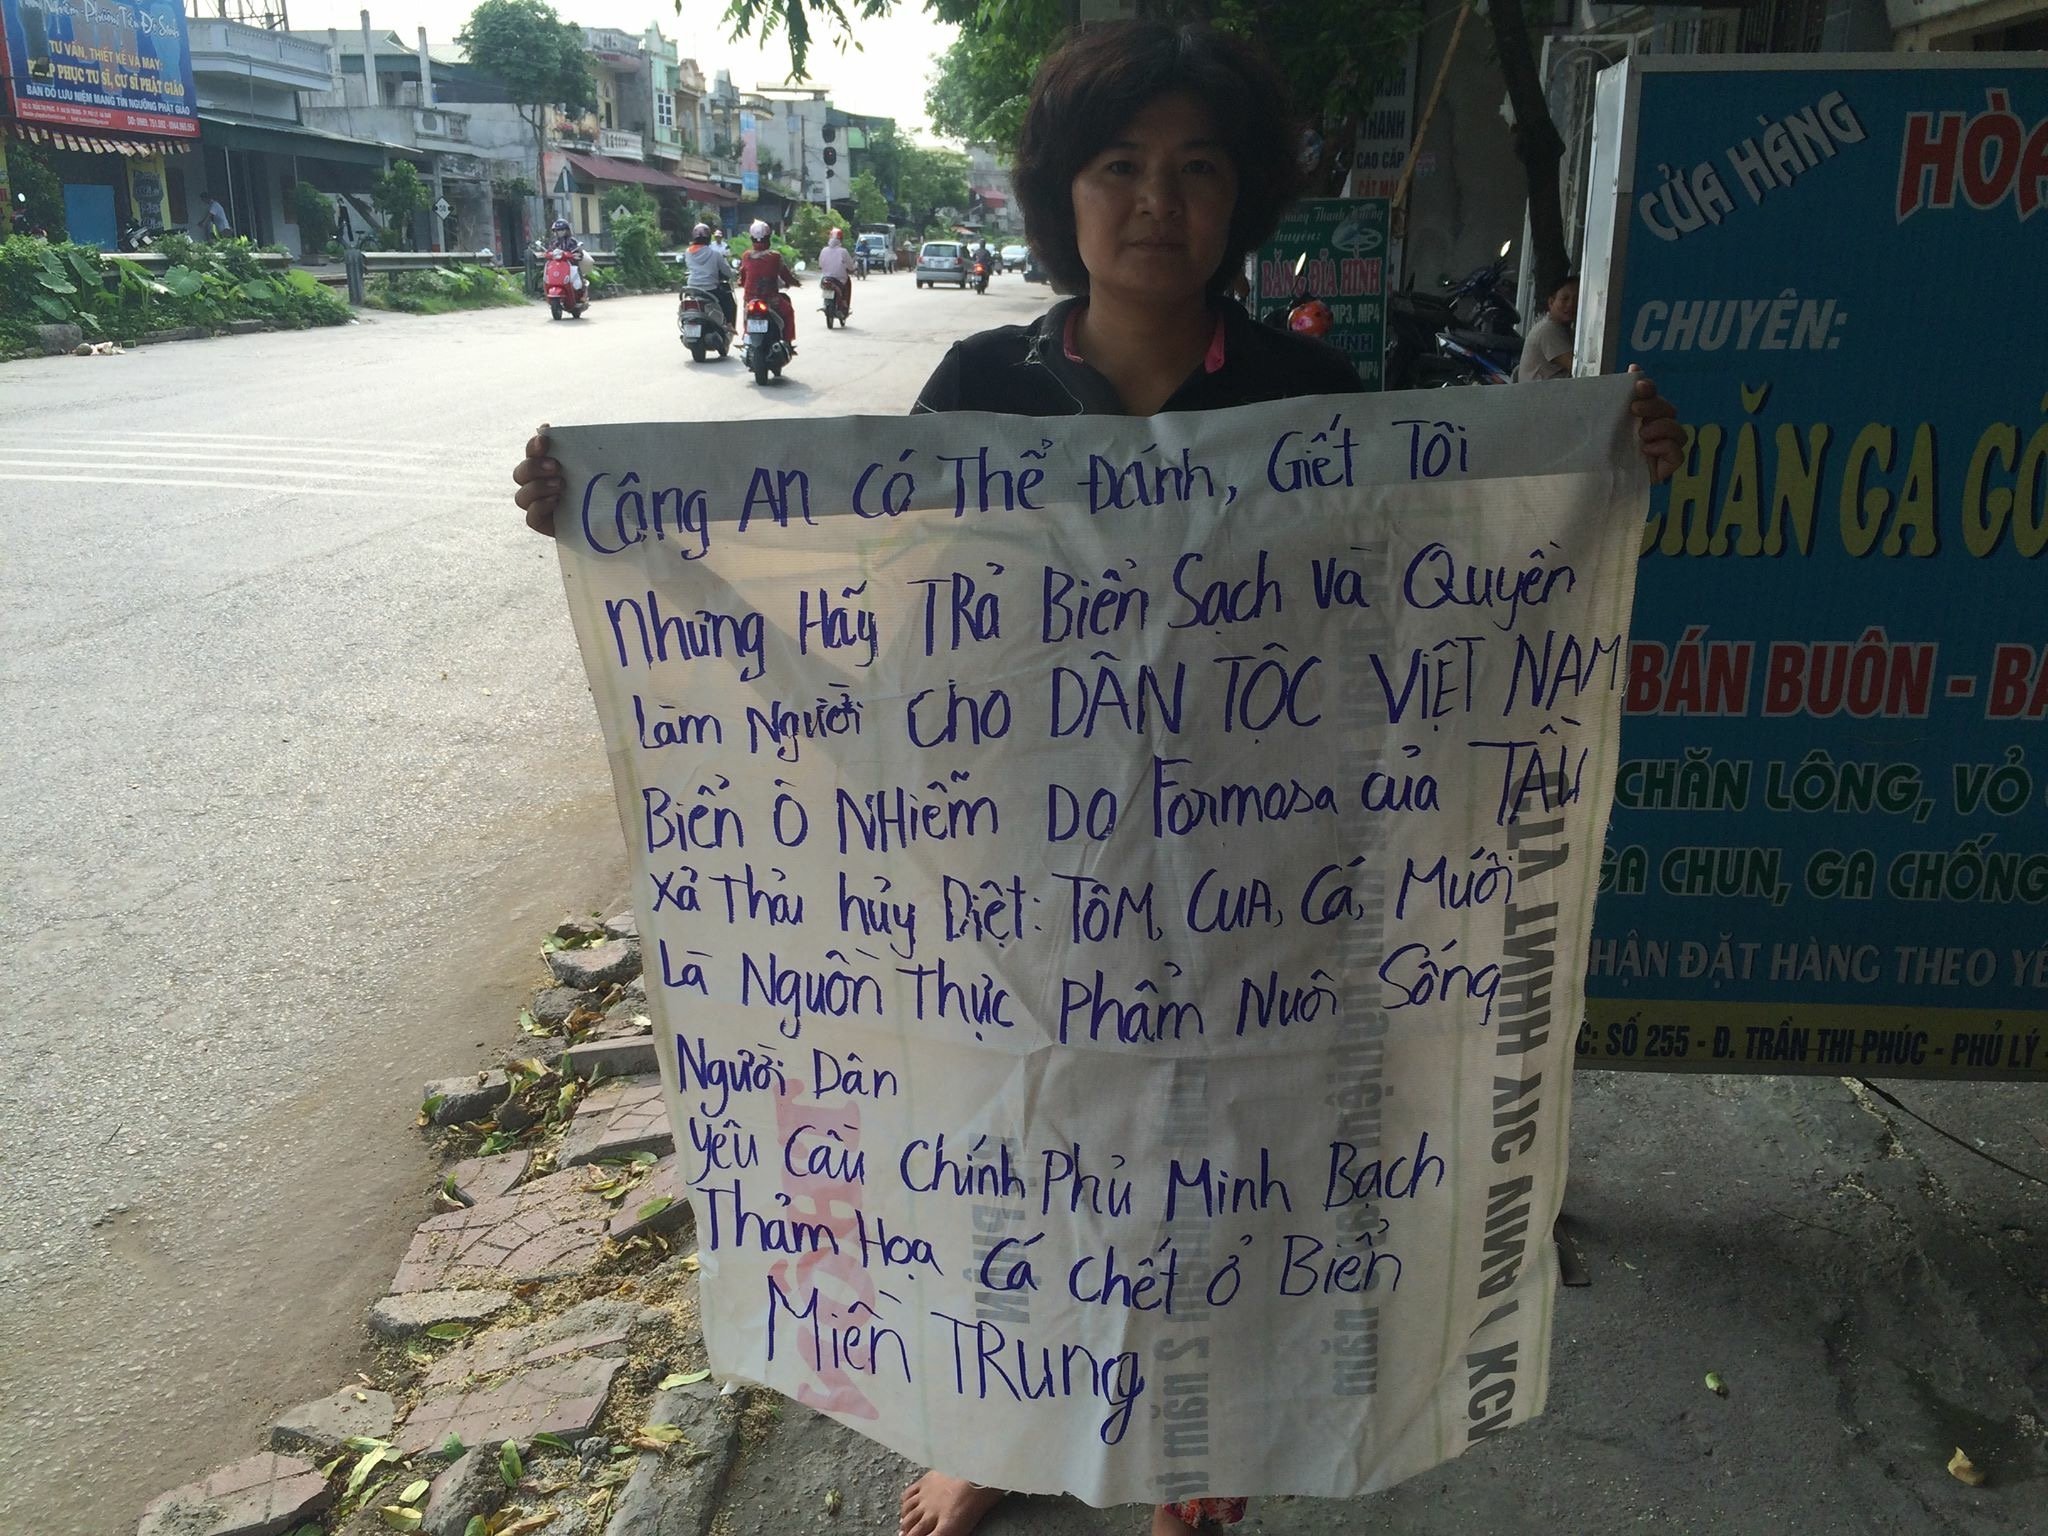 Phật Giáo
TƯ VẤN, THIẾT KẾ VÀ MAY:
PHÁP PHỤC TU SĨ, CƯ SĨ PHẬT GIÁO
BÁN ĐỒ LƯU NIỆM MANG TÍN NGƯỠNG PHẬT GIÁO
Công An Có Thể Đánh, Giết Tôi
Nhưng Hãy TRả Biển Sạch Và Quyền
Làm Người Cho DÂN TỘC VIỆT NAM
Biển Ô NHiễm DO Formosa của TÀU
Xả Thải hủy Diệt: TÔM, CUA, Cá, Muối
Là Nguồn Thực Phẩm Nuôi Sống
Người Dân
Yêu Cầu Chính Phủ Minh Bạch
Thảm Họa Cá Chết ở Biển
Miền TRung
CỬA HÀNG
CHUYÊN:
CHĂN GA
BÁN BUÔN - BÁ
CHĂN LÔNG, VỎ
GA CHUN, GA CHỐNG
NHẬN ĐẶT HÀNG THEO YÊ
ĐC: SỐ 255 - Đ. TRẦN THỊ PHÚC - PHỦ LÝ -
CAO CẤP
Chuyên:
BĂNG ĐĨA HÌNH
MP3, MP4
CTY TNHH XNC NINA / KCN
2 năm